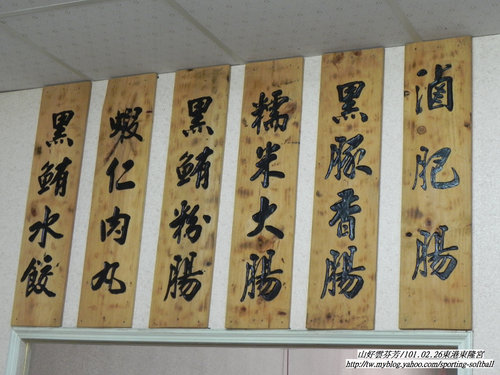 滷肥腸
黑豚香腸
糯米大腸
黑鮪粉腸
蝦仁肉丸
黑鮪水餃
山好雲芬芳/101.02.26東港東隆宮
http://tw.myblog.yahoo.com/sporting-softball